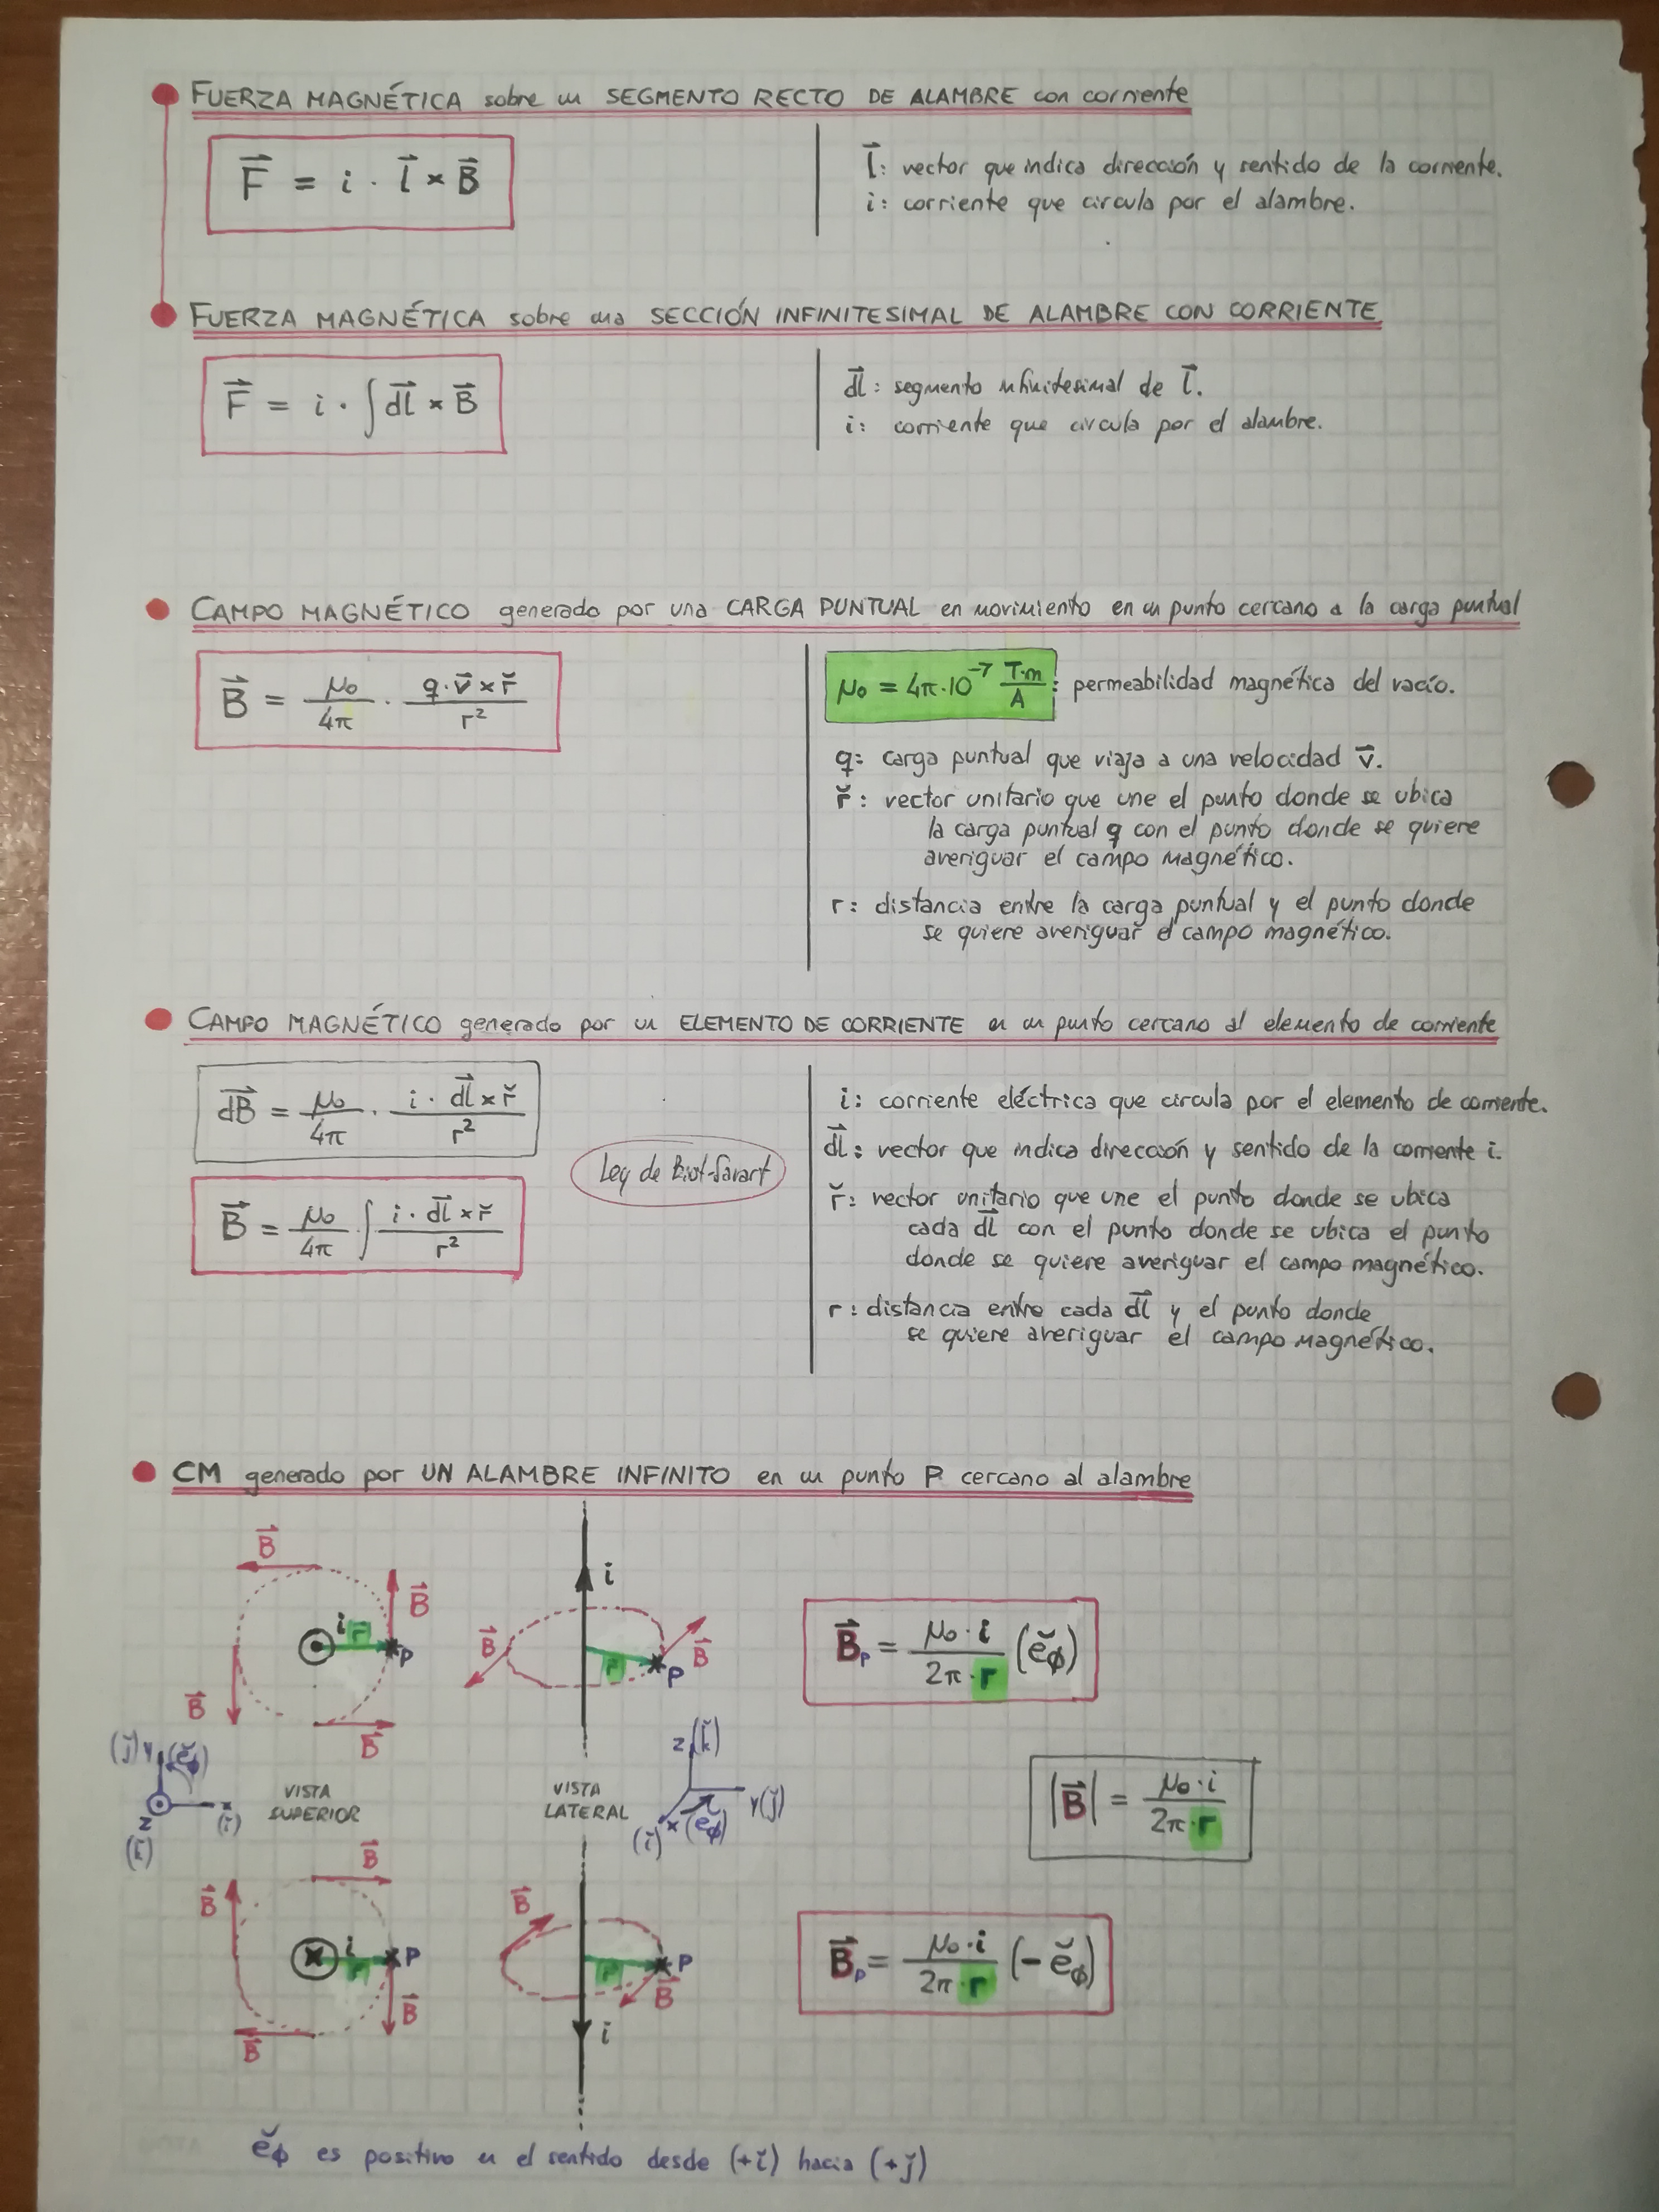 FUERZA MAGNÉTICA sobre un SEGMENTO RECTO DE ALAMBRE con corriente
F⃗ = i · l⃗ × B⃗
l⃗: vector que indica dirección y sentido de la corriente.
i: corriente que circula por el alambre.
FUERZA MAGNÉTICA sobre una SECCIÓN INFINITESIMAL DE ALAMBRE CON CORRIENTE
F⃗ = i · ∫ dl⃗ × B⃗
dl⃗: segmento infinitesimal de l⃗.
i: corriente que circula por el alambre.
CAMPO MAGNÉTICO generado por una CARGA PUNTUAL en movimiento en un punto cercano a la carga puntual
B⃗ = μ₀/4π · q·v⃗ × r̆/r²
μ₀ = 4π·10⁻⁷ T·m/A : permeabilidad magnética del vacío.
q: carga puntual que viaja a una velocidad v⃗.
r̆: vector unitario que une el punto donde se ubica
la carga puntual q con el punto donde se quiere
averiguar el campo magnético.
r: distancia entre la carga puntual y el punto donde
se quiere averiguar el campo magnético.
CAMPO MAGNÉTICO generado por un ELEMENTO DE CORRIENTE en un punto cercano al elemento de corriente
dB⃗ = μ₀/4π · i · dl⃗ × r̆/r²
Ley de Biot-Savart
B⃗ = μ₀/4π ∫ i · dl⃗ × r̆/r²
i: corriente eléctrica que circula por el elemento de corriente.
dl⃗: vector que indica dirección y sentido de la corriente i.
r̆: vector unitario que une el punto donde se ubica
cada dl⃗ con el punto donde se ubica el punto
donde se quiere averiguar el campo magnético.
r: distancia entre cada dl⃗ y el punto donde
se quiere averiguar el campo magnético.
CM generado por UN ALAMBRE INFINITO en un punto P cercano al alambre
B⃗
B⃗
i r
P
B⃗
B⃗
i
B⃗
r
P
B⃗
B⃗ₚ = μ₀·i/2π·r (ĕ_ϕ)
(j̆) y (ĕ_ϕ)
x (ĭ)
z (k̆)
VISTA
SUPERIOR
VISTA
LATERAL
z (k̆)
y (j̆)
(ĭ) x (ĕ_ϕ)
|B⃗| = μ₀·i/2π·r
B⃗
B⃗
i
r
P
B⃗
B⃗
B⃗
r
P
B⃗
i
B⃗ₚ = μ₀·i/2π·r (-ĕ_ϕ)
ĕ_ϕ es positivo en el sentido desde (+ĭ) hacia (+j̆)